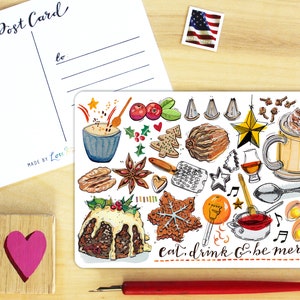 Post Card
to
MADE BY
eat, drink & be mer